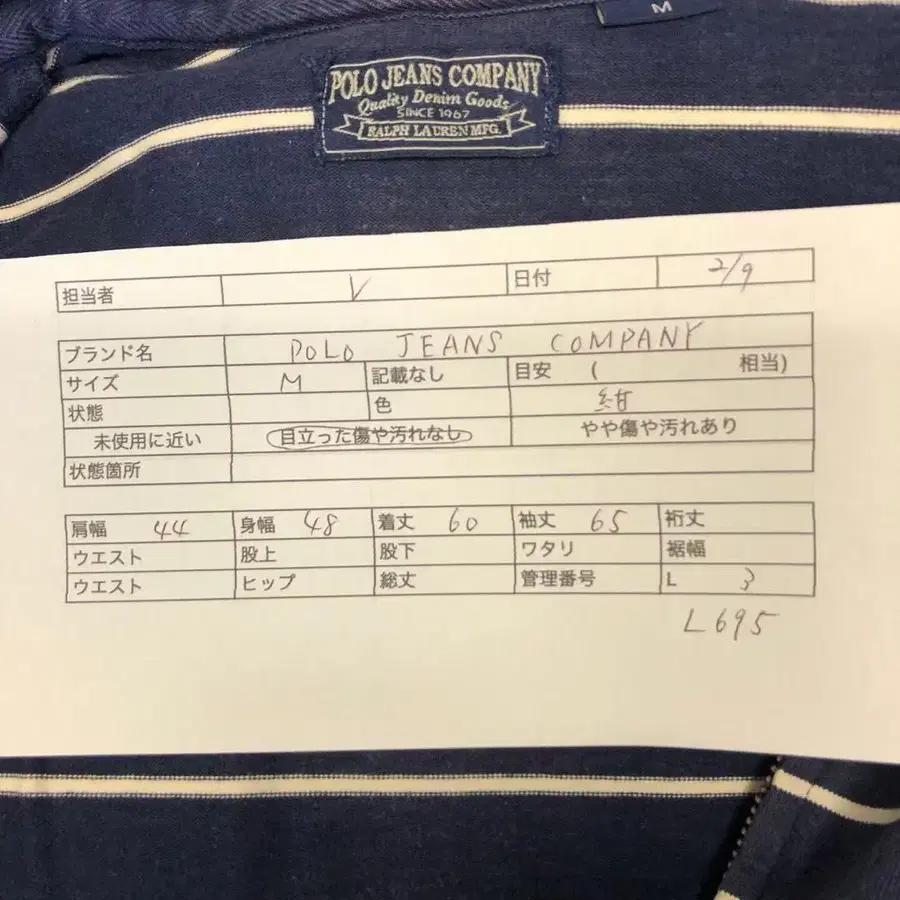 M
POLO JEANS COMPANY
Quality Denim Goods
SINCE 1967
RALPH LAUREN MFG.
担当者 V 日付 2/9
ブランド名 POLO JEANS COMPANY
サイズ M 記載なし 目安 ( 相当)
状態 色 紺
未使用に近い 目立った傷や汚れなし やや傷や汚れあり
状態箇所
肩幅 44 身幅 48 着丈 60 袖丈 65 裄丈
ウエスト 股上 股下 ワタリ 裾幅
ウエスト ヒップ 総丈 管理番号 L 3
L695